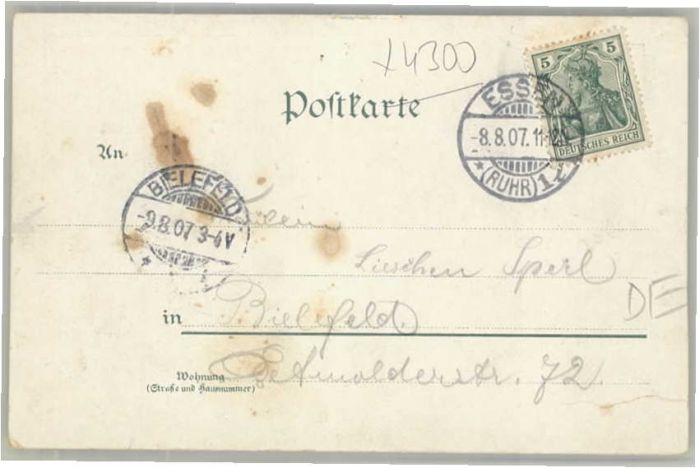 +4300
5 5
DEUTSCHES REICH
Postkarte
ESSEN
-8.8.07. 11-12
* (RUHR) 1
An
BIELEFELD
-9.8.07 3-4V
*
Lieschen Sperl
DE
in Bielefeld.
Wohnung
(Straße und Hausnummer)
Detmolderstr. 72.